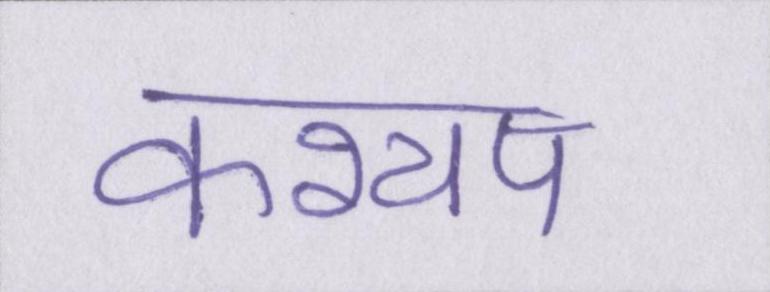 कश्यप